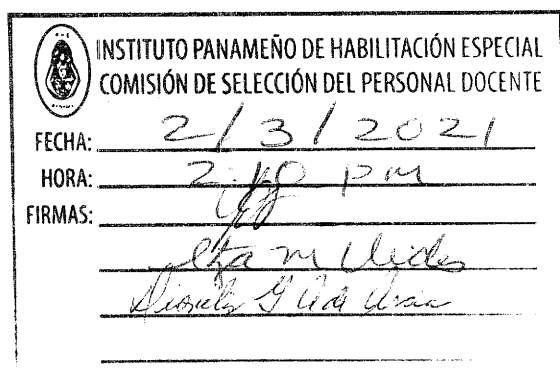 INSTITUTO PANAMEÑO DE HABILITACIÓN ESPECIAL
COMISIÓN DE SELECCIÓN DEL PERSONAL DOCENTE
FECHA: 2/3/2021
HORA: 2:10 pm
FIRMAS:
m
G